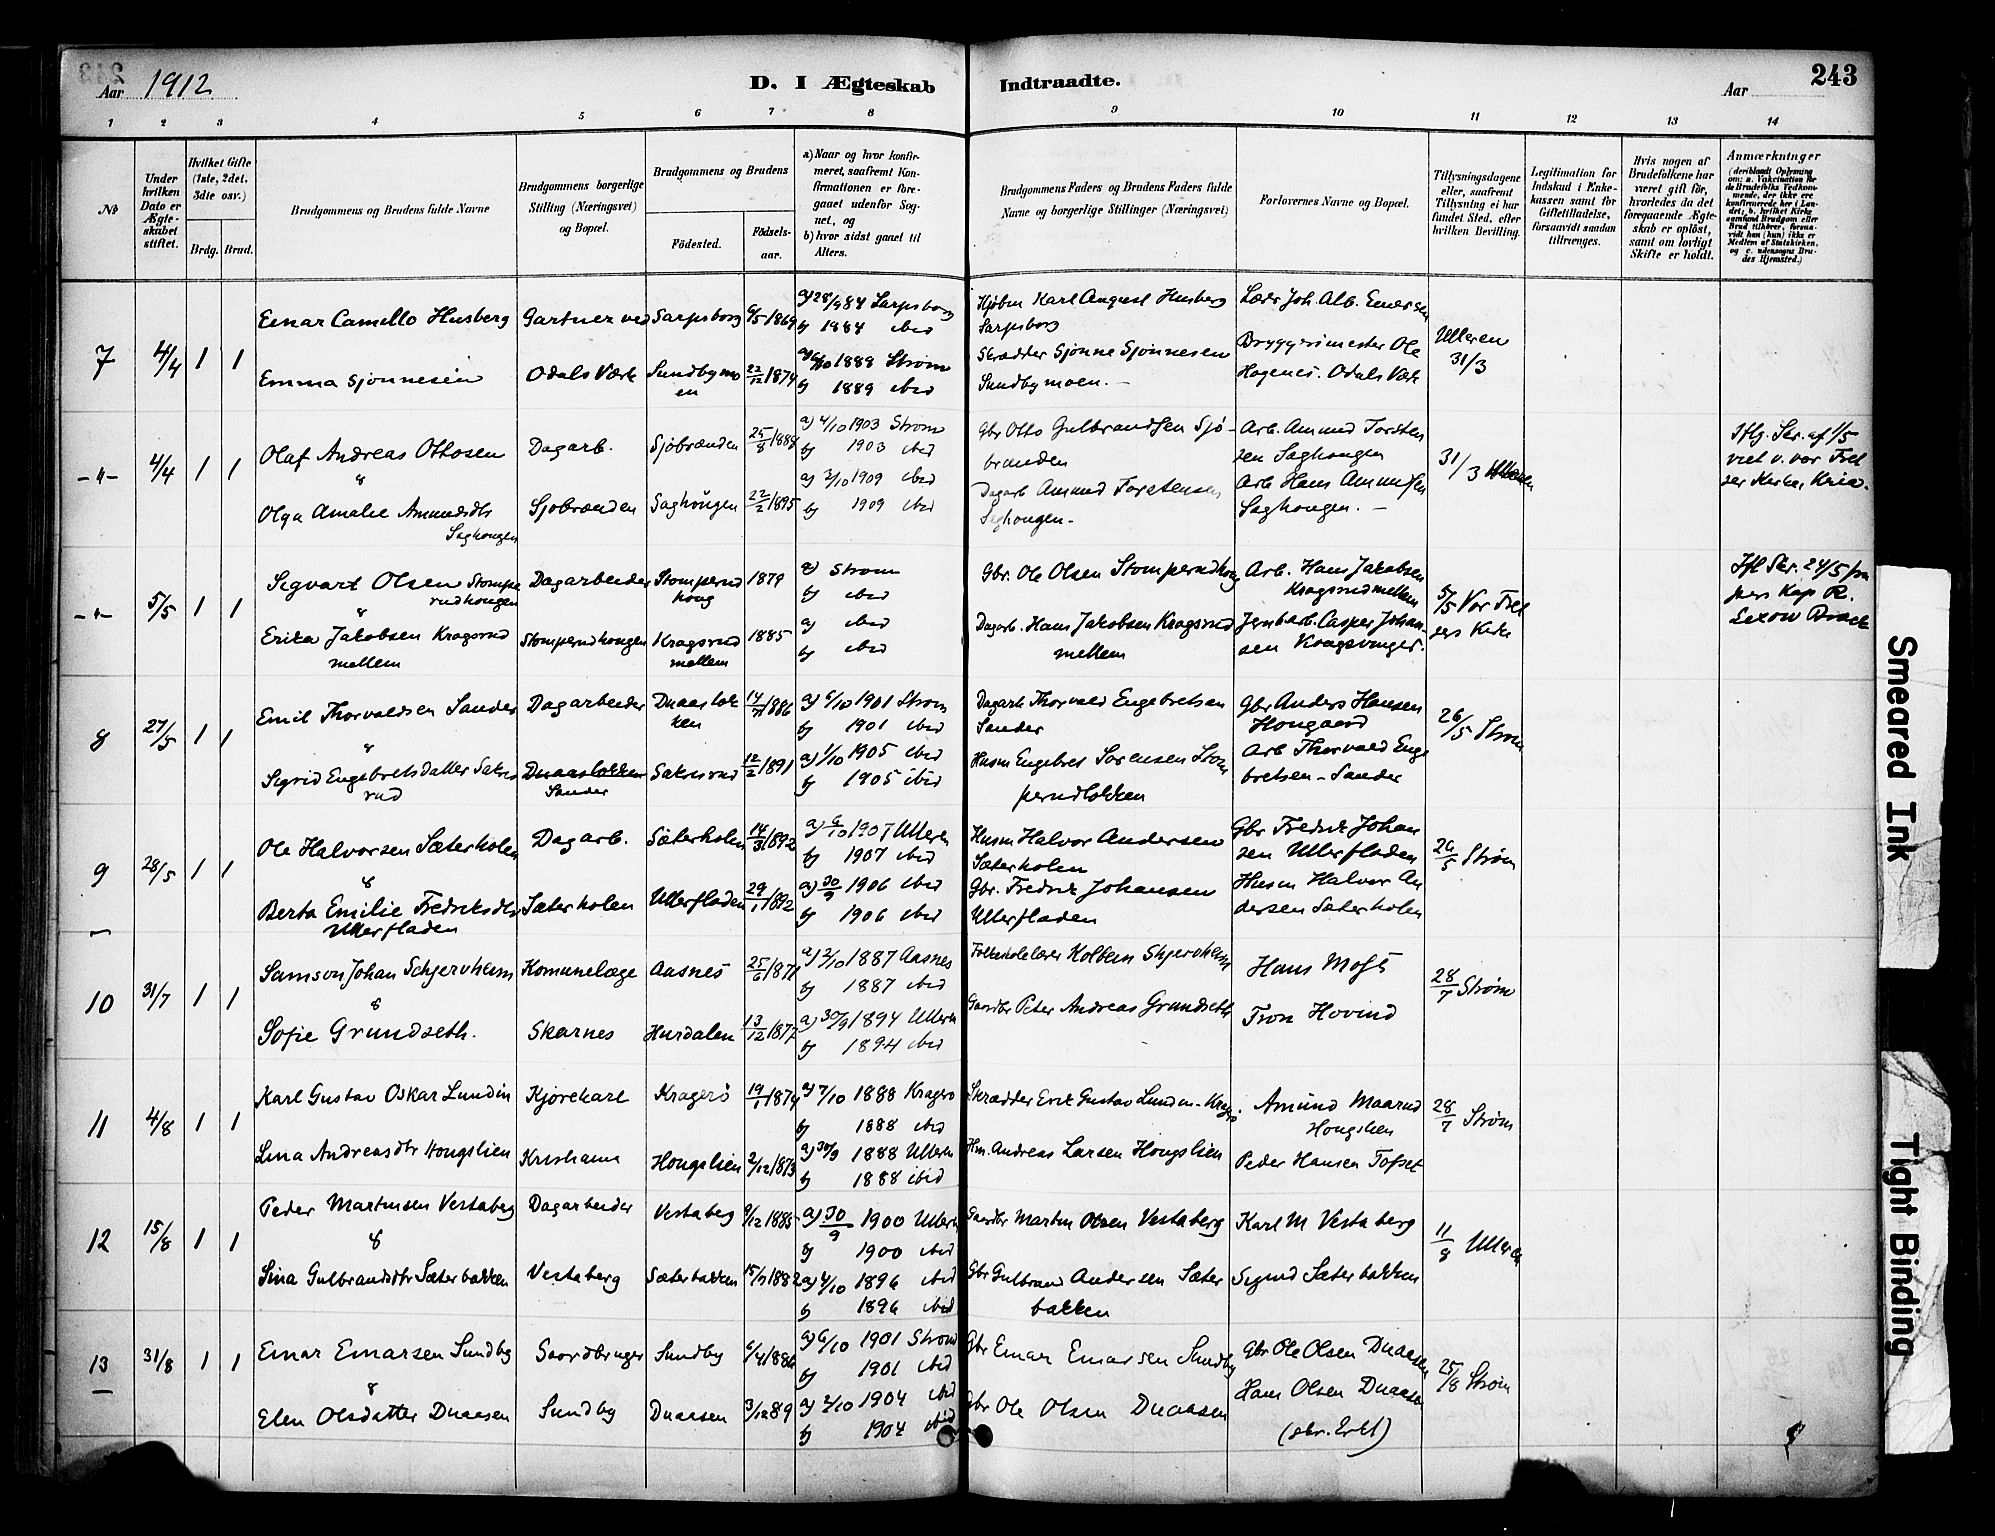 Aar 1912
D. I Ægteskab Indtraadte.
Aar
243
1 2 3 4 5 6 7 8 9 10 11 12 13 14
No
Under hvilken Dato er Ægteskabet stiftet.
Hvilket Gifte (1ste, 2det, 3die osv.)
Brdg. Brud.
Brudgommens og Brudens fulde Navne
Brudgommens borgerlige Stilling (Næringsvei) og Bopæl.
Brudgommens og Brudens
Fødested.
Fødselsaar.
a) Naar og hvor konfirmeret, saafremt Konfirmationen er foregaaet udenfor Sognet, og
b) hvor sidst gaaet til Alters.
Brudgommens Faders og Brudens Faders fulde Navne og borgerlige Stillinger (Næringsvei)
Forlovernes Navne og Bopæl.
Tillysningsdagene eller, saafremt Tillysning ei har fundet Sted, efter hvilken Bevilling.
Legitimation for Indskud i Enkekassen samt for Giftetilladelse, forsaavidt saadan tiltrænges.
Hvis nogen af Brudefolkene har været gift før, hvorledes da det foregaaende Ægteskab er opløst, samt om lovligt Skifte er holdt.
Anmærkninger
(deriblandt Oplysning om: a. Vakcination for de Brudefolks Vedkommende, der ikke ere konfirmerede her i Landet; b. hvilket Kirkesamfund Brudgom eller Brud tilhører, forsaavidt han (hun) ikke er Medlem af Statskirken, og c. udensogns Brudes Hjemsted.)
7 4/4 1 1
Einar Camillo Husberg Gartner ved Sarpsborg 9/5 1869 a) 28/9 84 Sarpsborg b) 1884 ibid
Kjøbm Karl August Husberg Sarpsborg
Lærer Joh. Alb. Einersen
Emma Sjønnesen Odals Værk Sundbymoen 22/12 1874 a) 6/10 1888 Strøm b) 1889 ibid
Skrædder Sjønne Sjønnesen Sundbymoen. –
Bryggerimester Ole Hagenes. Odals Værk
Ulleren 31/3
–"– 4/4 1 1
Olaf Andreas Ottosen Dagarb. Sjøbrænden 25/8 1888 a) 4/10 1903 Strøm b) 1903 ibid
Gbr Otto Gulbrandsen Sjøbrænden
Arb. Amund Torstensen Saghougen
&
Olga Amalie Amundsdtr Saghougen Sjøbrænden Saghougen 22/2 1895 a) 3/10 1909 ibid b) 1909 ibid
Dagarb Amund Torstensen Saghougen –
Arb Hans Amundsen Saghougen. –
31/3 Ulleren
Iflg. Skr. af 1/5 viet v. vor Frelser Kirke, Kria.
–"– 5/5 1 1
Sigvart Olsen Stomperudhougen Dagarbeider Stomperudhoug 1879 a) Strøm b) ibid
Gbr. Ole Olsen Stomperudhoug
Arb. Hans Jakobsen Kragsrudmellem
&
Erika Jakobsen Kragsrud mellem Stomperudhougen Kragsrud mellem 1885 a) ibid b) ibid
Dagarb. Hans Jakobsen Kragsrud mellem
Jernbarb. Casper Johansen Kongsvinger.
5/5 Vor Frelsers Kirke
Ifl Skr. 24/5 fra pers Kap R.
8 27/5 1 1
Emil Thorvaldsen Sander Dagarbeider Duaasløkken 14/11 1886 a) 6/10 1901 Strøm b) 1901 ibid
Dagarb Thorvald Engebretsen Sander
Gbr Anders Hansen Hougaard
&
Sigrid Engebretsdatter Saksrud Duaasløkken Sander Saksrud 12/2 1891 a) 1/10 1905 ibid b) 1905 ibid
Husm Engebret Sørensen Stomperudløkken
Arb Thorvald Engebretsen – Sander
26/5 Strøm
9 28/5 1 1
Ole Halvorsen Sæterholen Dagarb. Sæterholen 14/3 1892 a) 6/10 1907 Ullern b) 1907 ibid
Husm Halvor Andersen Sæterholen
Gbr Fredrik Johansen Ullerfladen
&
Berta Emilie Fredriksdtr Ullerfladen Sæterholen Ullerfladen 29/1 1892 a) 30/9 1906 ibid b) 1906 ibid
Gbr. Fredrik Johansen Ullerfladen
Husm Halvor Andersen Sæterholen
26/5 Strøm
10 31/7 1 1
Samson Johan Schjerveheim Komunelæge Aasnes 25/6 1871 a) 2/10 1887 Aasnes b) 1887 ibid
Folkeskolelærer Kolbein Skjerveheim
Hans Moft
&
Sofie Grundseth. Skarnes Hurdalen 13/12 1877 a) 30/9 1894 Ullern b) 1894 ibid
Gaardbr Peter Andreas Grundseth
Tron Hovind
28/7 Strøm
11 4/8 1 1
Karl Gustav Oskar Lundin Kjørekarl Kragerø 19/1 1874 a) 7/10 1888 Kragerø b) 1888 ibid
Skrædder Erik Gustav Lundin – Kragerø.
Amund Maarud Hougslien
Lina Andreasdtr Hougslien Kristiania Hougslien 2/12 1873 a) 30/9 1888 Ullern b) 1888 ibid
Hm. Andreas Larsen Hougslien
Peder Hansen Tofset
28/7 Strøm
12 15/8 1 1
Peder Martinsen Vestaberg Dagarbeider Vestaberg 9/12 1885 a) 30/9 1900 Ullern b) 1900 ibid
Gaardbr Martin Olsen Vestaberg
Karl M Vestaberg
&
Lina Gulbrandsdtr Sæterbakken Vestaberg Sæterbakken 15/7 1882 a) 4/10 1896 ibid b) 1896 ibid
Gbr Gulbrand Andersen Sæterbakken
Sigurd Sæterbakken
11/8 Ulleren
13 31/8 1 1
Einar Einarsen Sundby Gaardbruger Sundby 6/4 1886 a) 6/10 1901 Strøm b) 1901 ibid
Gbr Einar Einarsen Sundby
Gbr Ole Olsen Duaasen
&
Elen Olsdatter Duaasen Sundby Duaasen 3/12 89 a) 2/10 1904 ibid b) 1904 ibid
Gbr Ole Olsen Duaasen
Hans Olsen Duaasen
25/8 Strøm
Smeared Ink
Tight Binding